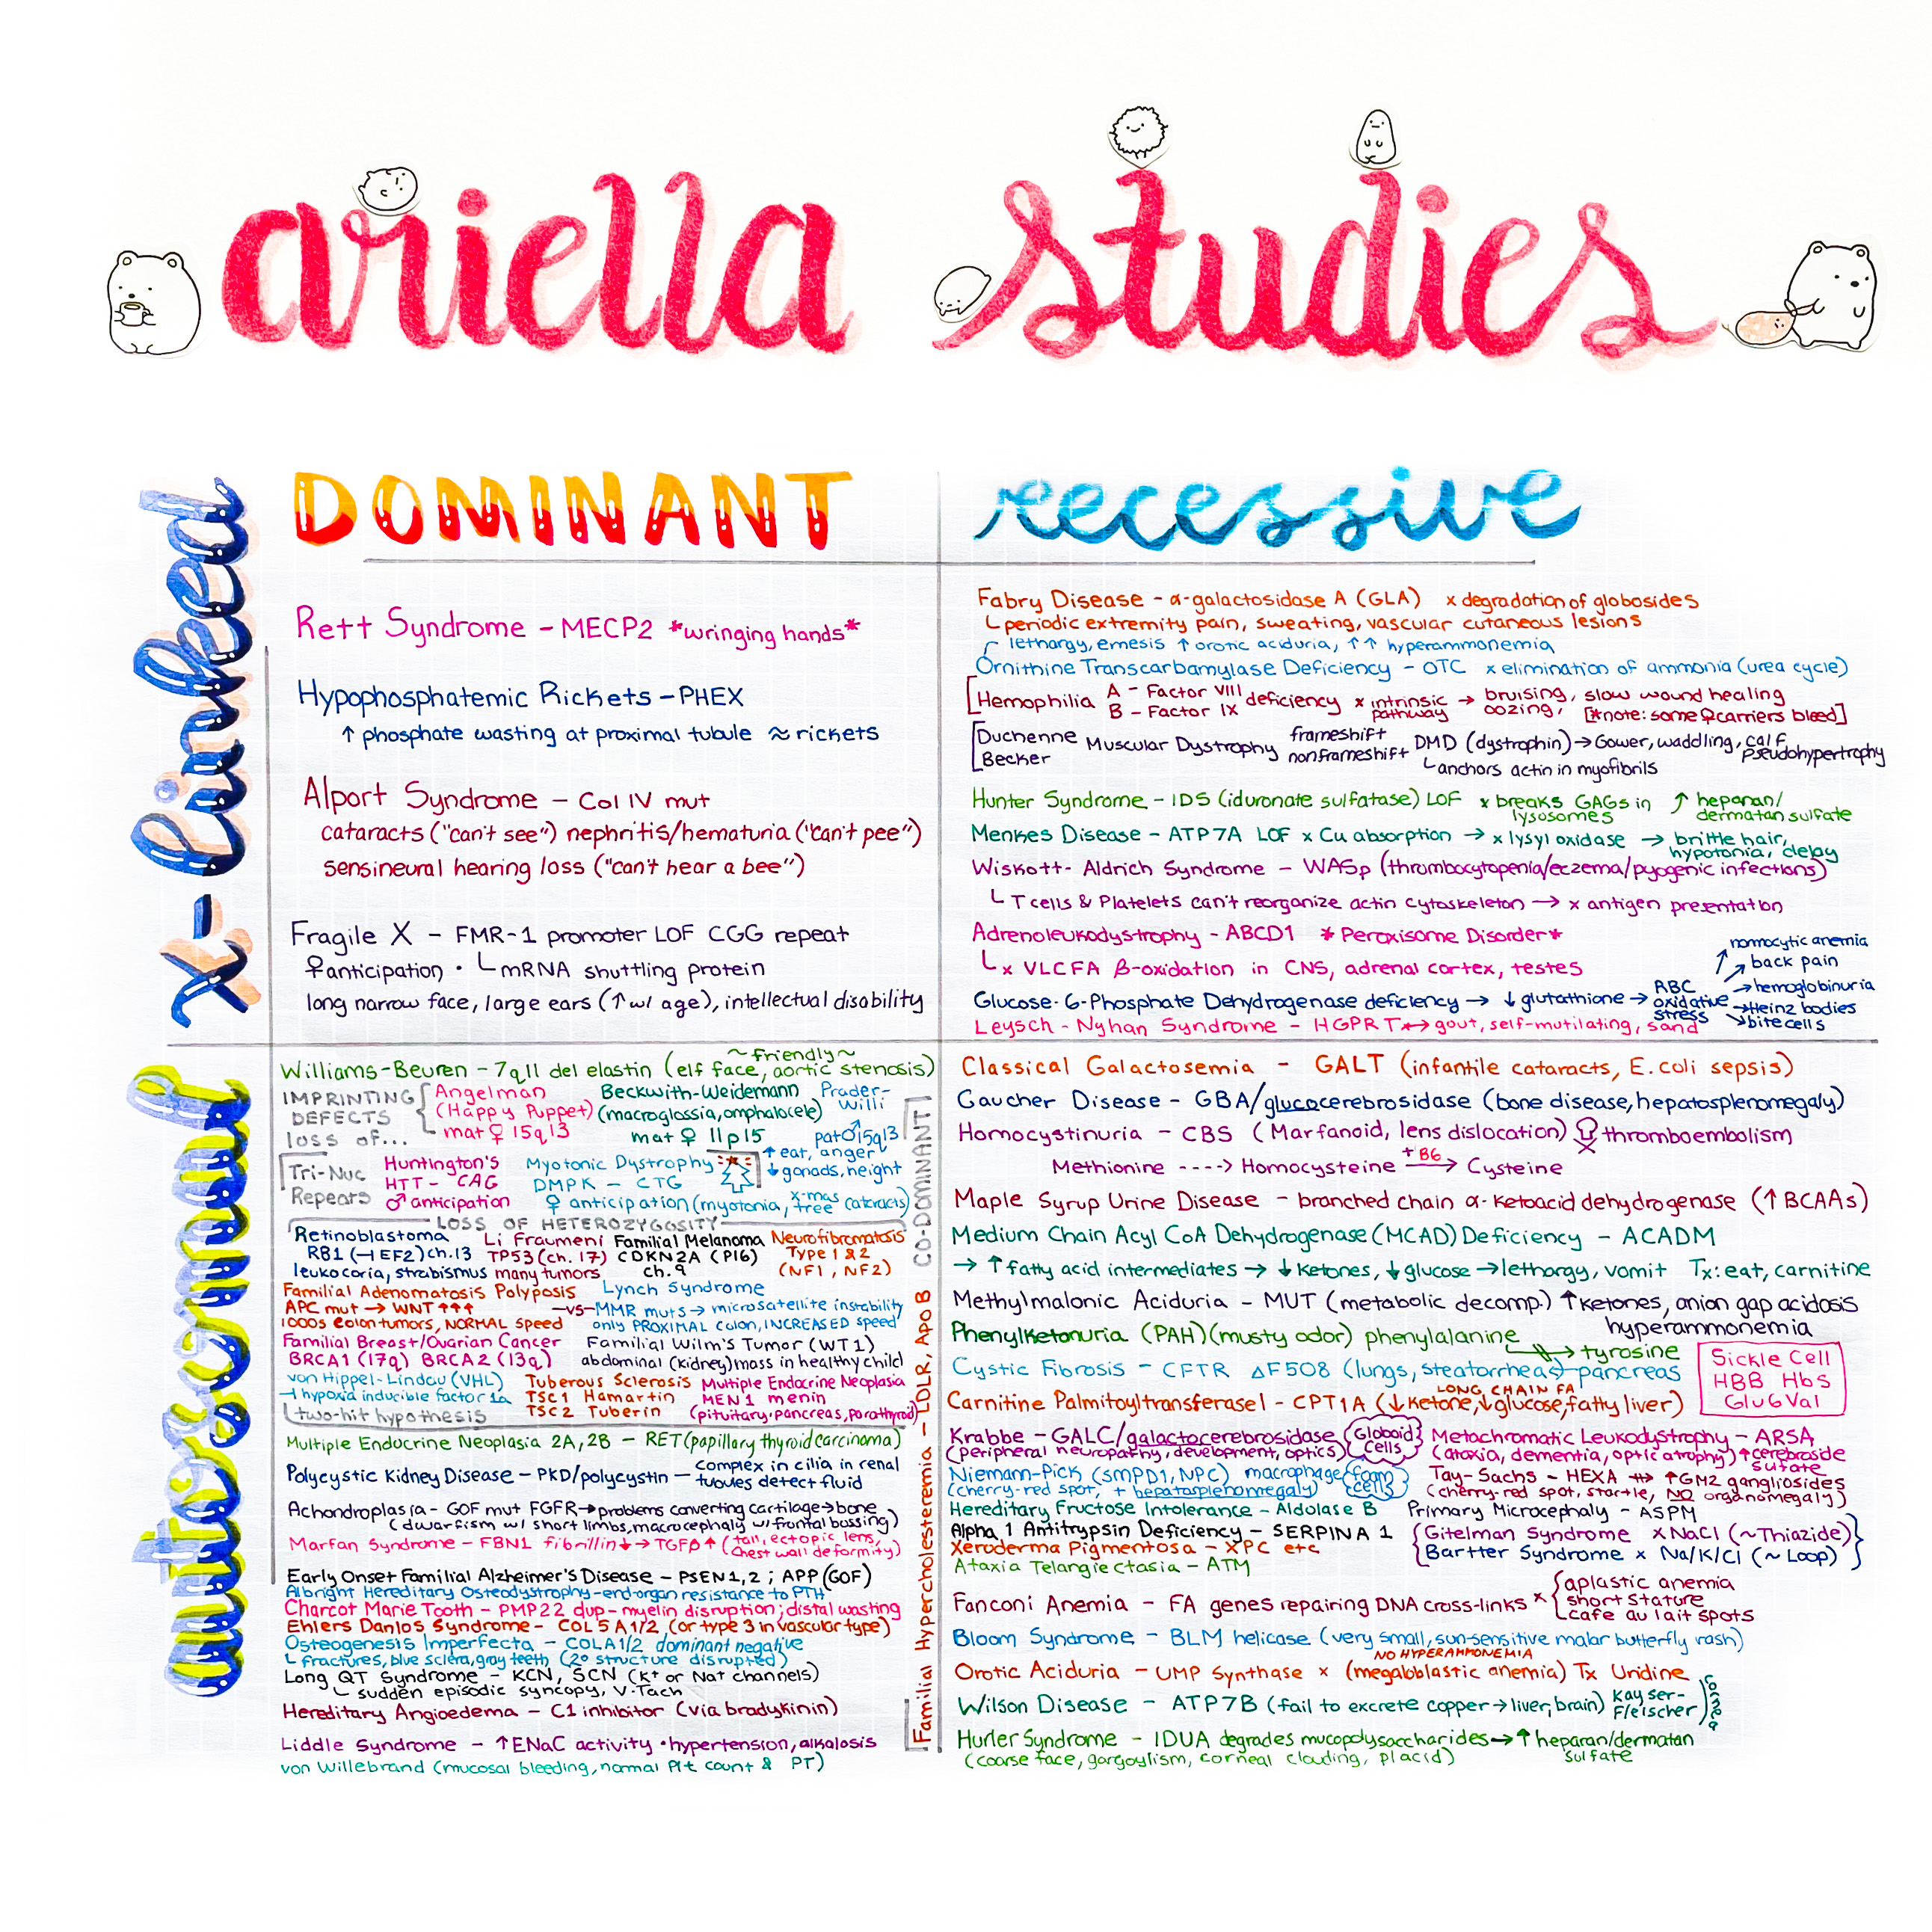 ariella studies
DOMINANT
recessive
x-linked
Rett Syndrome - MECP2 *wringing hands*
Hypophosphatemic Rickets - PHEX
↑ phosphate wasting at proximal tubule ≈ rickets
Alport Syndrome - Col IV mut
cataracts ("can't see") nephritis/hematuria ("can't pee")
sensineural hearing loss ("can't hear a bee")
Fragile X - FMR-1 promoter LOF CGG repeat
♀anticipation • └mRNA shuttling protein
long narrow face, large ears (↑w/ age), intellectual disability
Fabry Disease - α-galactosidase A (GLA) x degradation of globosides
└periodic extremity pain, sweating, vascular cutaneous lesions
┌ lethargy, emesis ↑ orotic aciduria, ↑↑ hyperammonemia
Ornithine Transcarbamylase Deficiency - OTC x elimination of ammonia (urea cycle)
[Hemophilia A - Factor VIII deficiency x intrinsic pathway → bruising, slow wound healing
B - Factor IX oozing, [*note: some ♀carriers bleed]
[Duchenne Muscular Dystrophy frameshift DMD (dystrophin) → Gower, waddling, calf pseudohypertrophy
Becker nonframeshift └anchors actin in myofibrils
Hunter Syndrome - IDS (iduronate sulfatase) LOF x breaks GAGs in lysosomes ↑ heparan/dermatan sulfate
Menkes Disease - ATP7A LOF x Cu absorption → x lysyl oxidase → brittle hair, hypotonia, delay
Wiskott-Aldrich Syndrome - WASp (thrombocytopenia/eczema/pyogenic infections)
└ T cells & Platelets can't reorganize actin cytoskeleton → x antigen presentation
Adrenoleukodystrophy - ABCD1 *Peroxisome Disorder*
└x VLCFA β-oxidation in CNS, adrenal cortex, testes
Glucose-6-Phosphate Dehydrogenase deficiency → ↓ glutathione → ABC oxidative stress
normocytic anemia
back pain
→hemoglobinuria
→Heinz bodies
bite cells
Leysch-Nyhan Syndrome - HGPRT↔gout, self-mutilating, sand
autosomal
Williams-Beuren - 7q11 del elastin (elf face, aortic stenosis)
~friendly~
IMPRINTING DEFECTS loss of...
Angelman (Happy Puppet) mat ♀ 15q13
Beckwith-Weidemann (macroglossia, omphalocele) mat ♀ 11p15
Prader-Willi pat♂15q13
↑ eat, anger
↓ gonads, height
Tri-Nuc Repeats
Huntington's HTT - CAG ♂ anticipation
Myotonic Dystrophy DMPK - CTG
♀ anticipation (myotonia, x-mas tree cataracts)
LOSS OF HETEROZYGOSITY
Retinoblastoma RB1 (⊣EF2) ch.13 leukocoria, strabismus
Li Fraumeni TP53 (ch. 17) many tumors
Familial Melanoma CDKN2A (P16) ch. 9
Neurofibromatosis Type 1 & 2 (NF1, NF2)
Familial Adenomatosis Polyposis
APC mut → WNT ↑↑↑
1000s colon tumors, NORMAL speed
Lynch Syndrome
-vs- MMR muts → microsatellite instability
only PROXIMAL colon, INCREASED speed
Familial Breast/Ovarian Cancer
BRCA1 (17q) BRCA2 (13q)
Familial Wilm's Tumor (WT1)
abdominal (kidney) mass in healthy child
von Hippel-Lindau (VHL)
⊣ hypoxia inducible factor 1a
Tuberous Sclerosis
TSC1 Hamartin
TSC2 Tuberin
Multiple Endocrine Neoplasia
MEN1 menin
(pituitary•pancreas, parathyroid)
two-hit hypothesis
Multiple Endocrine Neoplasia 2A, 2B - RET (papillary thyroid carcinoma)
Polycystic Kidney Disease - PKD/polycystin - complex in cilia in renal tubules detect fluid
Achondroplasia - GOF mut FGFR→problems converting cartilage→bone
(dwarfism w/ short limbs, macrocephaly w/ frontal bossing)
Marfan Syndrome - FBN1 fibrillin↓→ TGFβ↑ (tall, ectopic lens, chest wall deformity)
Early Onset Familial Alzheimer's Disease - PSEN1,2 ; APP (GOF)
Albright Hereditary Osteodystrophy - end-organ resistance to PTH
Charcot Marie Tooth - PMP22 dup - myelin disruption; distal wasting
Ehlers Danlos Syndrome - COL5A1/2 (or type 3 in vascular type)
Osteogenesis Imperfecta - COLA1/2 dominant negative
└ fractures, blue sclera, gray teeth (2° structure disrupted)
Long QT Syndrome - KCN, SCN (K+ or Na+ channels)
└ sudden episodic syncopy, V. Tach
Hereditary Angioedema - C1 inhibitor (via bradykinin)
Liddle Syndrome - ↑ENaC activity • hypertension, alkalosis
von Willebrand (mucosal bleeding, normal Plt count & PT)
[Familial Hypercholesteremia - LDLR, ApoB CO-DOMINANT]
Classical Galactosemia - GALT (infantile cataracts, E. coli sepsis)
Gaucher Disease - GBA/glucocerebrosidase (bone disease, hepatosplenomegaly)
Homocystinuria - CBS (Marfanoid, lens dislocation) thromboembolism
Methionine ----> Homocysteine +B6 → Cysteine
Maple Syrup Urine Disease - branched chain α-ketoacid dehydrogenase (↑BCAAs)
Medium Chain Acyl CoA Dehydrogenase (MCAD) Deficiency - ACADM
→ ↑ fatty acid intermediates → ↓ketones, ↓glucose →lethargy, vomit Tx: eat, carnitine
Methylmalonic Aciduria - MUT (metabolic decomp.) ↑ketones, anion gap acidosis
hyperammonemia
Phenylketonuria (PAH) (musty odor) phenylalanine → tyrosine
Cystic Fibrosis - CFTR ΔF508 (lungs, steatorrhea)-pancreas
Sickle Cell
HBB HbS
Glu6Val
LONG CHAIN FA
Carnitine Palmitoyltransferase1 - CPT1A (↓ketone,↓glucose, fatty liver)
Krabbe - GALC/galactocerebrosidase Globoid cells
(peripheral neuropathy, development, optics)
Metachromatic Leukodystrophy - ARSA
(ataxia, dementia, optic atrophy) ↑cerebroside sulfate
Niemann-Pick (SMPD1, NPC) macrophage foam cells
(cherry-red spot, + hepatosplenomegaly)
Tay-Sachs - HEXA ⇸ ↑GM2 gangliosides
(cherry-red spot, startle, NO organomegaly)
Hereditary Fructose Intolerance - Aldolase B
Primary Microcephaly - ASPM
Alpha 1 Antitrypsin Deficiency - SERPINA 1
Gitelman Syndrome x NaCl (~Thiazide)
Xeroderma Pigmentosa - XPC etc
Bartter Syndrome x Na/K/Cl (~ Loop)
Ataxia Telangiectasia - ATM
Fanconi Anemia - FA genes repairing DNA cross-links x
aplastic anemia
short stature
cafe au lait spots
Bloom Syndrome - BLM helicase (very small, sun-sensitive malar butterfly rash)
NO HYPERAMMONEMIA
Orotic Aciduria - UMP Synthase x (megaloblastic anemia) Tx Uridine
Wilson Disease - ATP7B (fail to excrete copper → liver, brain) Kayser-Fleischer
Hurler Syndrome - IDUA degrades mucopolysaccharides→↑ heparan/dermatan sulfate
(coarse face, gargoylism, corneal clouding, placid)